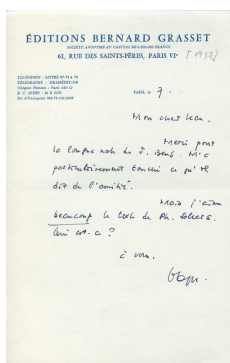 ÉDITIONS BERNARD GRASSET
SOCIÉTÉ ANONYME AU CAPITAL DE FRANCS
61, RUE DES SAINTS-PÈRES, PARIS VIᵉ
[1958]
TÉLÉPHONE : LITTRÉ
TÉLÉGRAPH :
Chèques Postaux : Paris
R. C. SEINE :
No d'Entreprise
PARIS, le 7.
Mon cher
Merci pour
la longue note de J. Bens. M'a
particulièrement touché ce qu'il
dit de l'amitié.
Mais j'aime
beaucoup le texte de Ph. Sollers.
Qui est-ce ?
à vous,